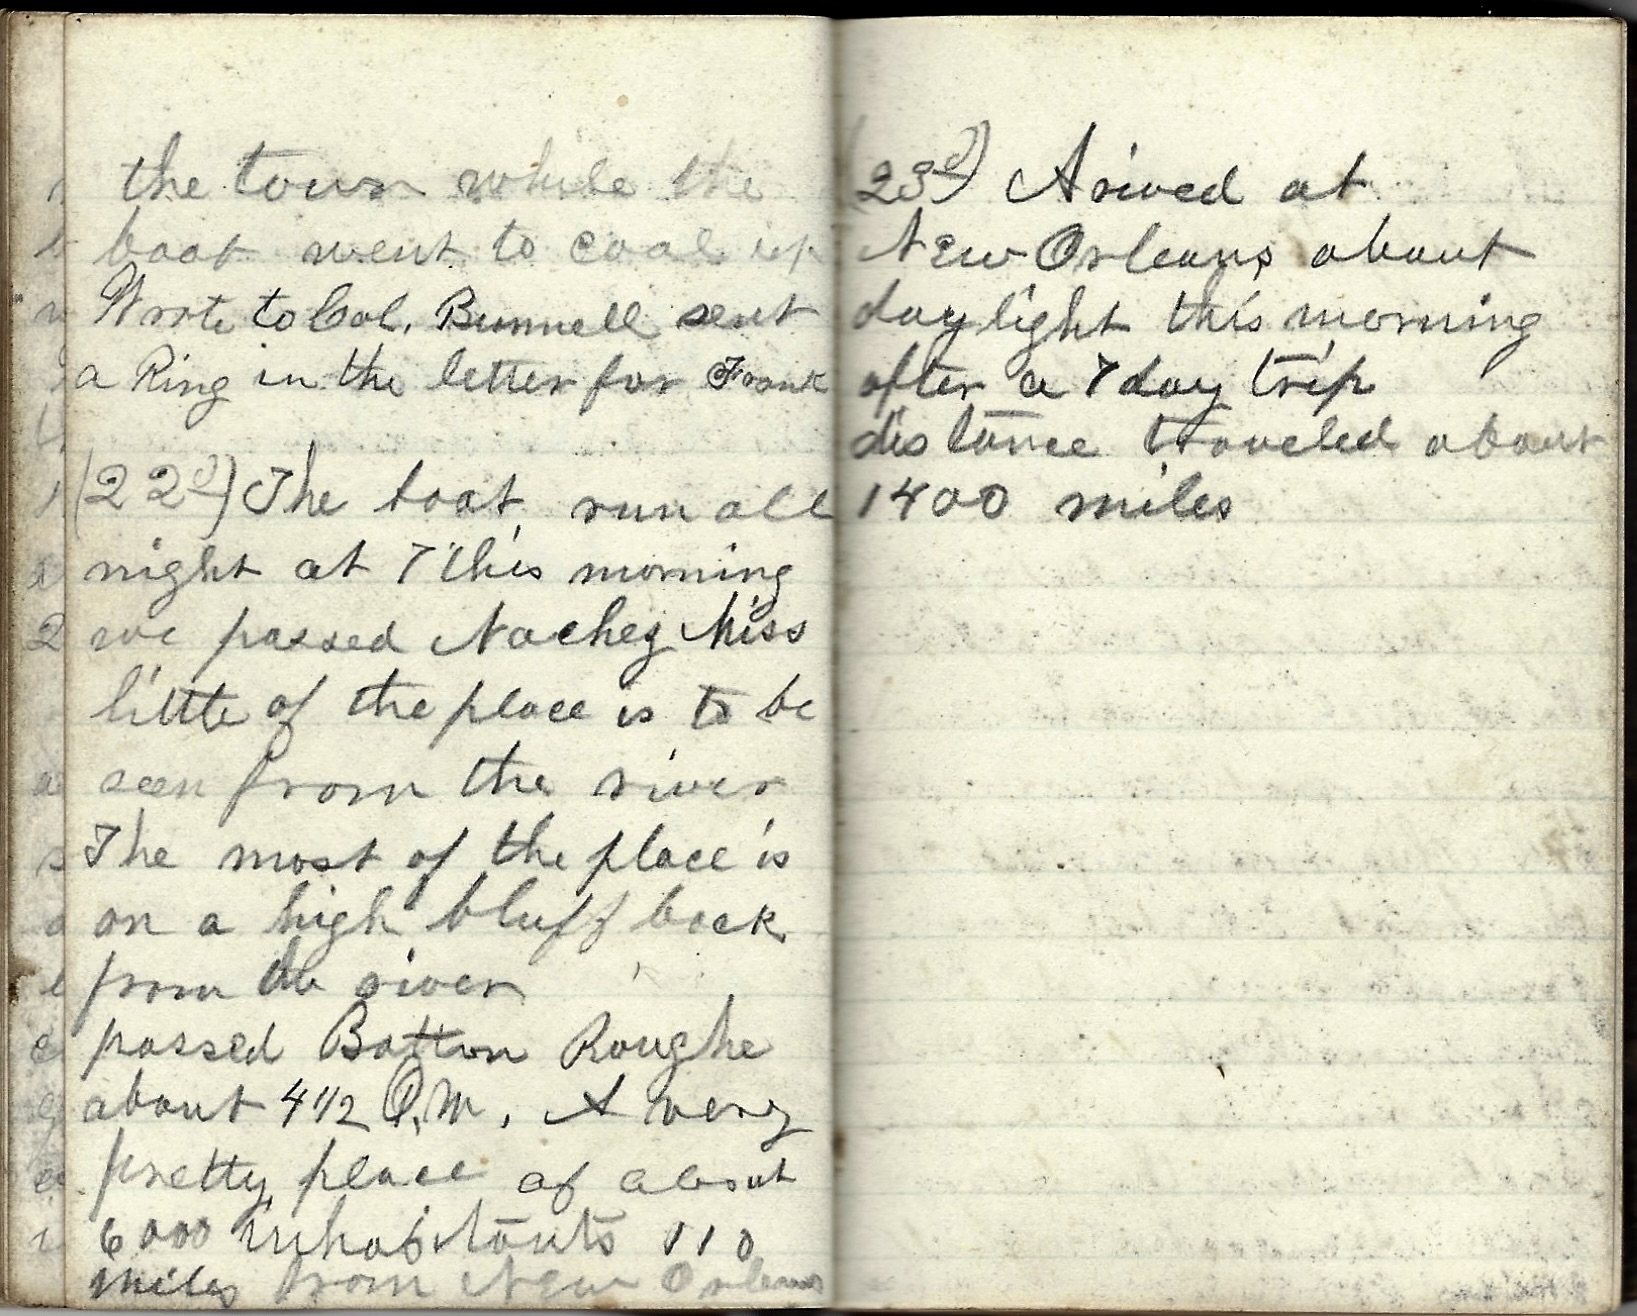 the town while the
boat went to coal up
Wrote to Col. Bunnell sent
a Ring in the letter for Frank
(22d) The boat run all
night at 7 this morning
we passed Nachez Miss
little of the place is to be
seen from the river
The most of the place is
on a high bluff back
from the river
passed Batton Roughe
about 4 1/2 P.M. A very
pretty place of about
6000 inhabitants 110
miles from New Orleans
(23d) Arived at
New Orleans about
daylight this morning
after a 7 day trip
distance traveled about
1400 miles